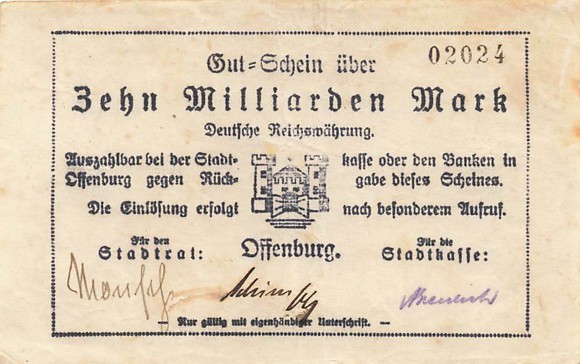 02024
Gut=Schein über
Zehn Milliarden Mark
Deutsche Reichswährung.
Auszahlbar bei der Stadt- kasse oder den Banken in
Offenburg gegen Rück- gabe dieses Scheines.
Die Einlösung erfolgt nach besonderem Aufruf.
Für den Für die
Stadtrat: Offenburg. Stadtkasse:
— Nur gültig mit eigenhändiger Unterschrift. —